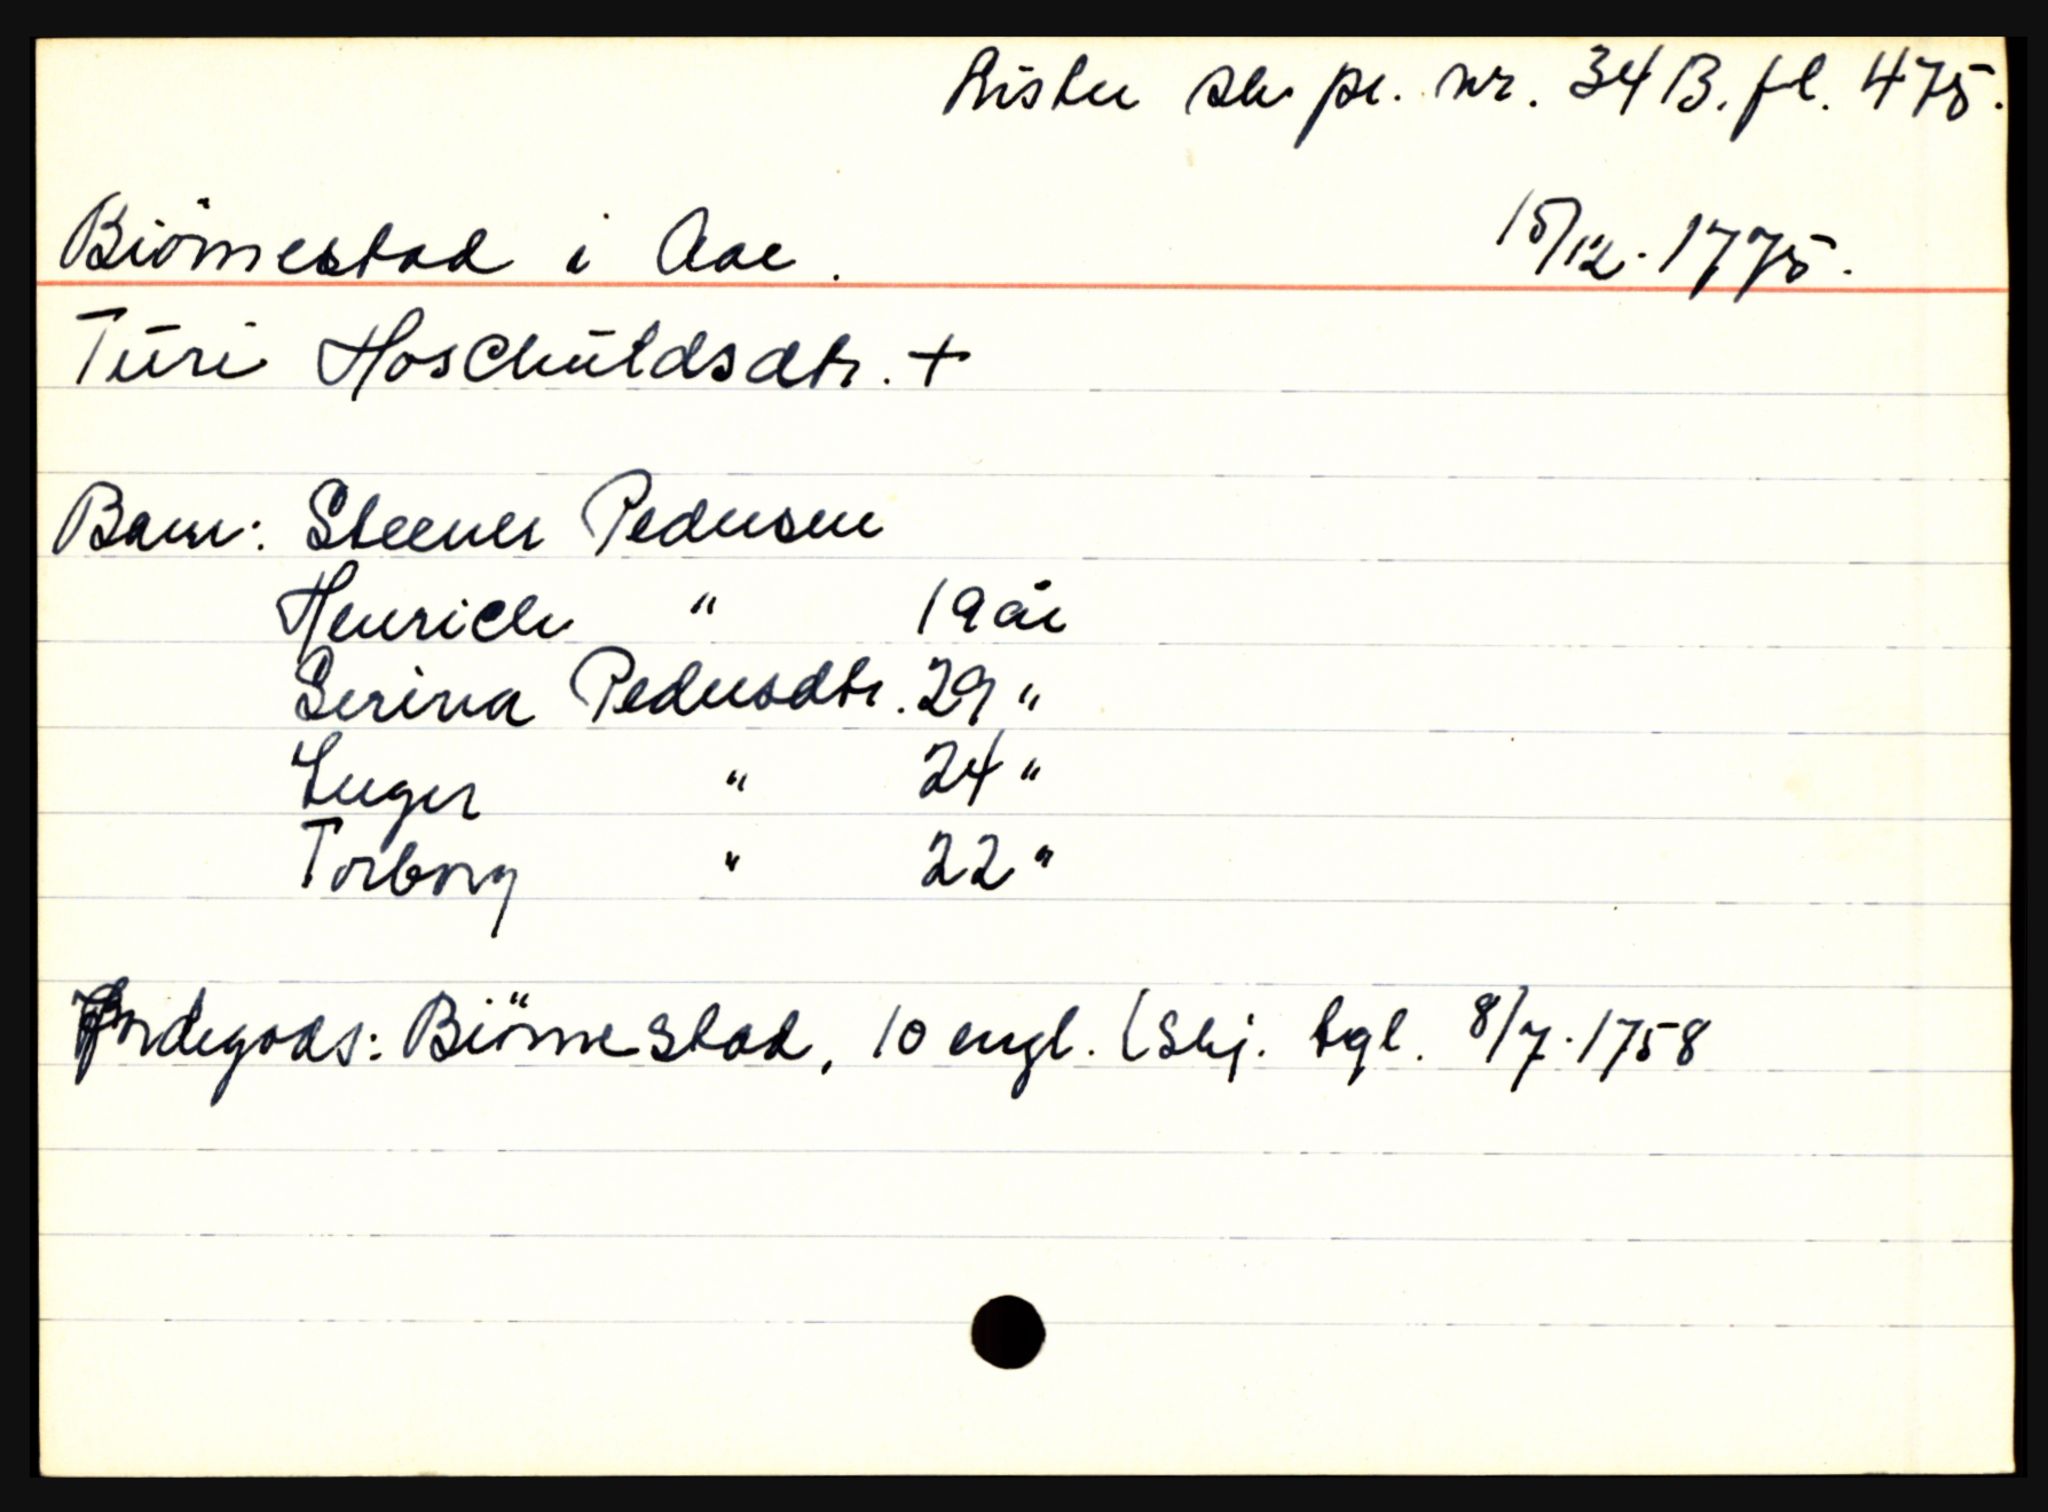 Lister sk pr. nr. 34 B. fl. 475.
Biörnestad i Aae. 15/12. 1775.
Turi Hoschuldsdtr. +
Barn: Steener Pedersen
Henrich " 19 år
Serina Pedersdtr. 29 "
Inger " 24 "
Torborg " 22 "
Jordegods: Biörnestad, 10 engl. (Skj. tgl. 8/7. 1758